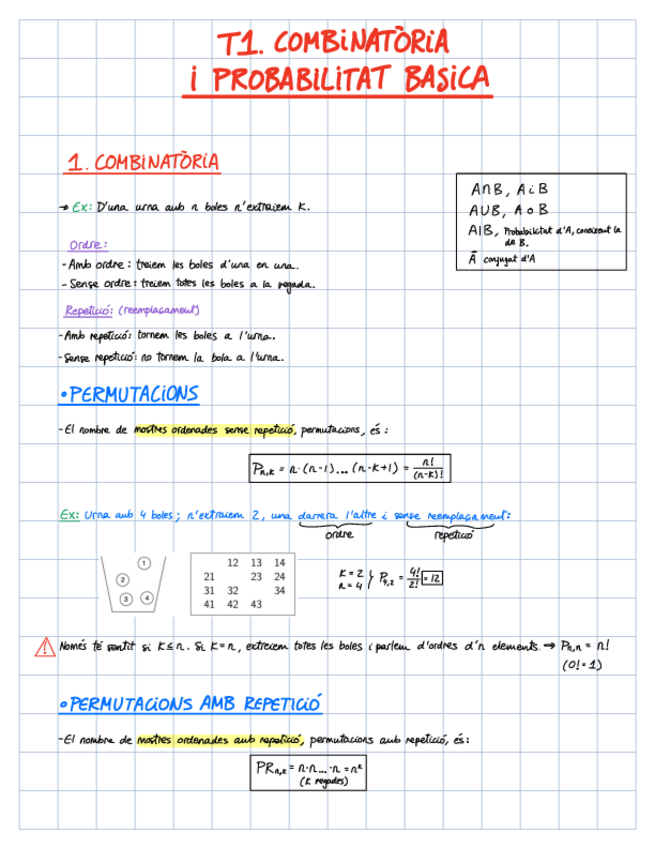 T1. COMBINATÒRIA
I PROBABILITAT BASICA
1. COMBINATÒRIA
→ Ex: D'una urna amb n boles n'extraiem K.
A∩B, A i B
A∪B, A o B
A|B, Probabilitat d'A, coneixent la
de B.
Ā conjugat d'A
Ordre:
- Amb ordre: treiem les boles d'una en una.
- Sense ordre: treiem totes les boles a la vegada.
Repetició: (reemplaçament)
- Amb repetició: tornem les boles a l'urna.
- Sense repetició: no tornem la bola a l'urna.
• PERMUTACIONS
- El nombre de mostres ordenades sense repetició, permutacions, és:
P_{n,k} = n·(n-1)...(n-k+1) = n!/(n-k)!
Ex: Urna amb 4 boles; n'extraiem 2, una darrera l'altre i sense reemplaçament:
ordre repetició
1
2
3 4
12 13 14
21 23 24
31 32 34
41 42 43
K=2
n=4 } P_{4,2} = 4!/2! = 12
⚠ Només té sentit si K≤n. Si K=n, extreiem totes les boles i parlem d'ordres d'n elements. → P_{n,n} = n!
(0!=1)
• PERMUTACIONS AMB REPETICIÓ
- El nombre de mostres ordenades amb repetició, permutacions amb repetició, és:
PR_{n,k} = n·n...·n = n^k
(K vegades)